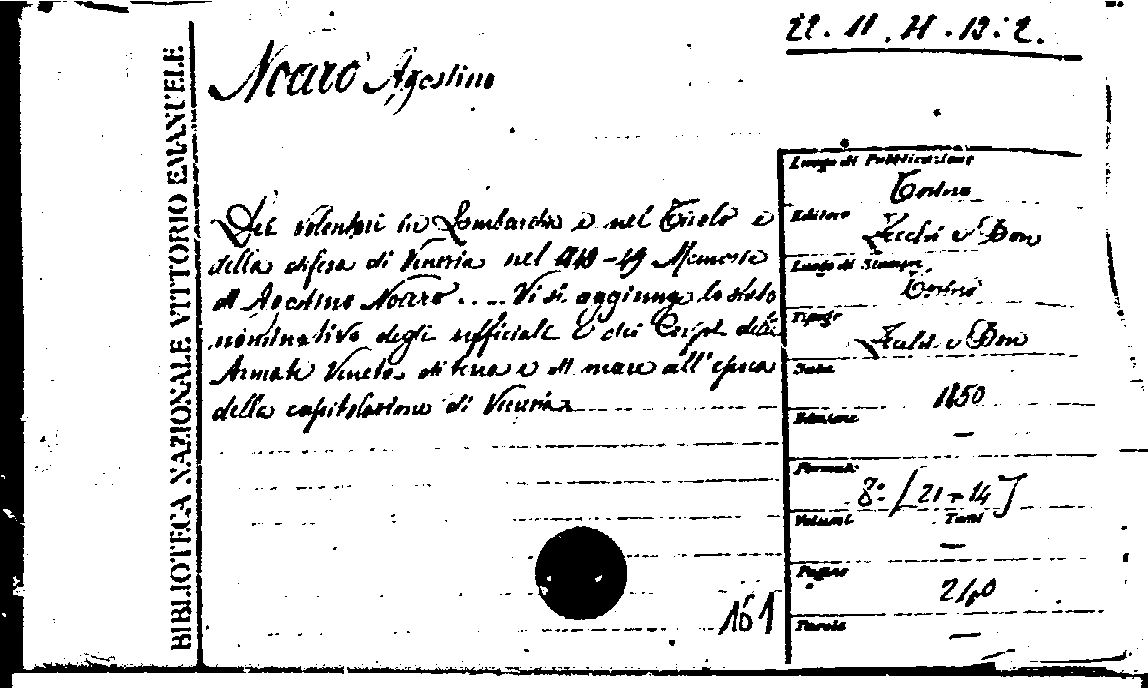 BIBLIOTECA NAZIONALE VITTORIO EMANUELE
22. 11. H. 12: 2.
Noaro Agostino
Dei volontari in Lombardia e nel Tirolo e
della difesa di Venezia nel 1848-49 Memorie
di Agostino Noaro .... Vi si aggiunge lo stato
nominativo degli ufficiali e dei Corpi della
Armata Veneta di terra e di mare all'epoca
della capitolazione di Venezia
161
Luogo di Pubblicazione
Torino
Editore
Zecchi e Bona
Luogo di Stampa
Torino
Tipogr
Zecchi e Bona
Data
1850
Edizione
—
Formato
8º [21-14]
Volumi Tomi
—
Pagine
240
Tavole
—